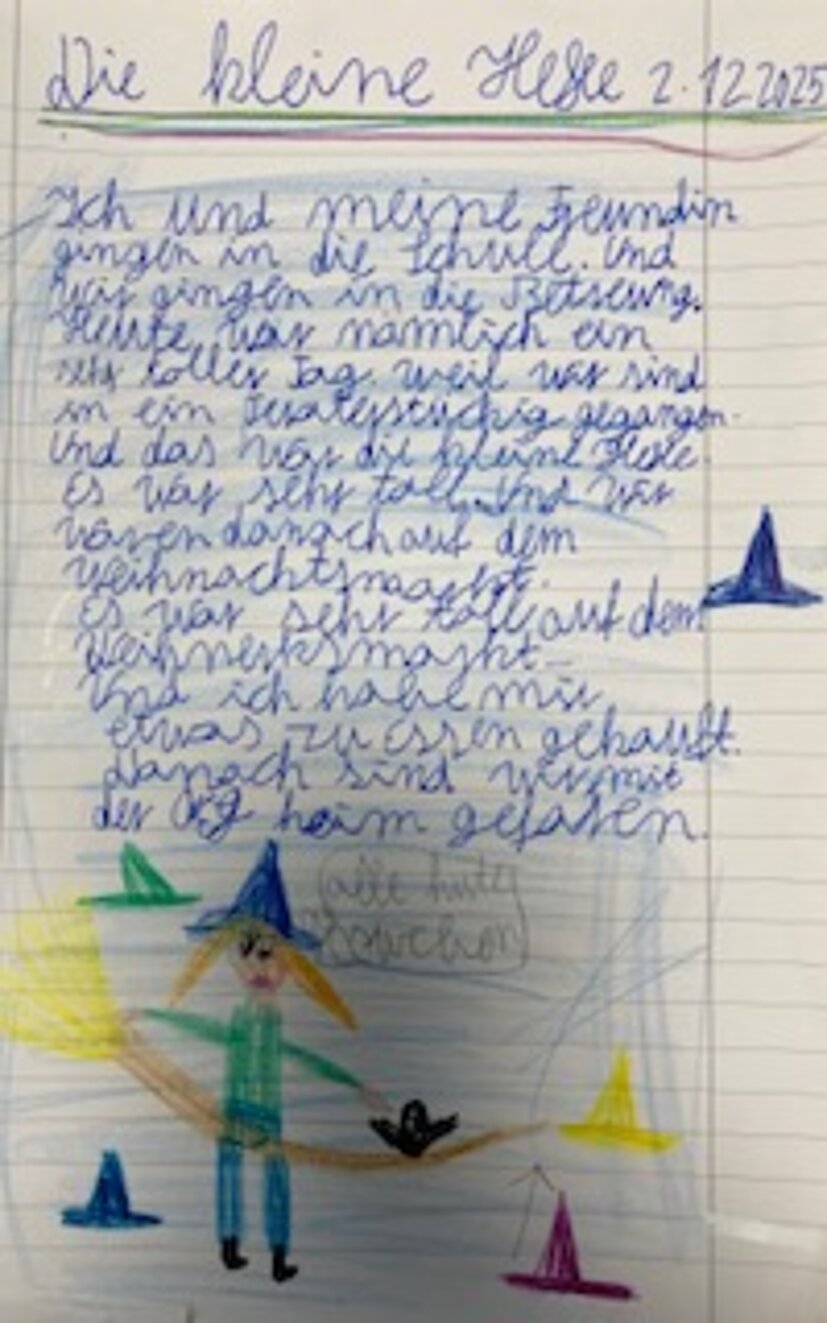 Die kleine Hexe 2.12.2025
Ich und meine Freundin
gingen in die Schule. Und
wir gingen in die
Heute war nämlich ein
sehr toller Tag. weil wir sind
in ein gegangen.
Und das war die kleine Hexe.
Es war sehr toll. Und wir
waren danach auf dem
Weihnachtsmaarkt.
Es war sehr toll auf dem
Und ich habe mir
etwas zu essen gekauft.
Danach sind wir mit
der heim gefaren.
alle